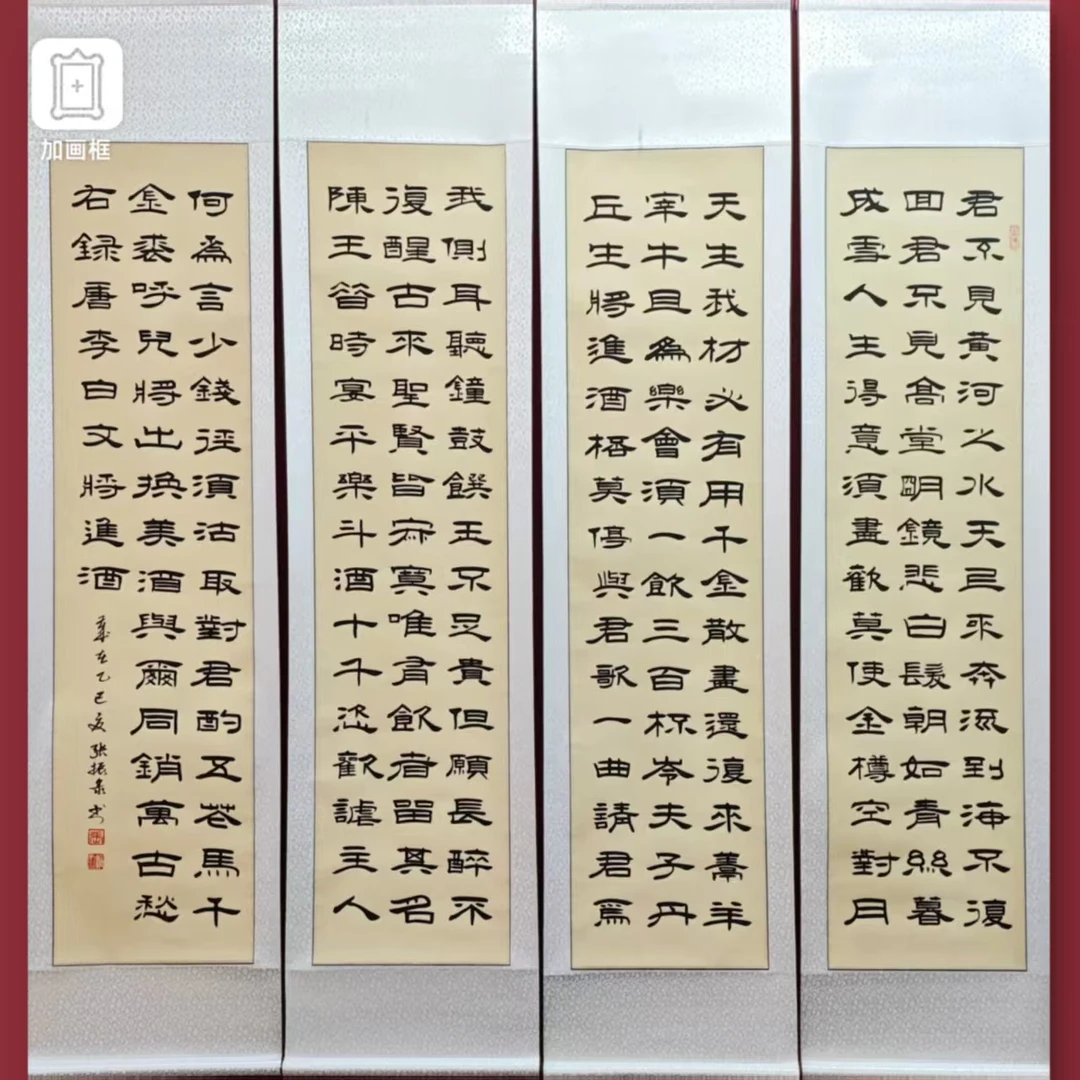 君不見黃河之水天上來奔流到海不復
回君不見高堂明鏡悲白髮朝如青絲暮
成雪人生得意須盡歡莫使金樽空對月
天生我材必有用千金散盡還復來羊
宰牛且為樂會須一飲三百杯岑夫子丹
丘生將進酒桮莫停與君歌一曲請君為
我側耳聽鐘鼓饌玉不足貴但願長醉不
復醒古來聖賢皆寂寞唯有飲者留其名
陳王昔時宴平樂斗酒十千恣歡謔主人
何為言少錢徑須沽取對君酌五花馬千
金裘呼兒將出換美酒與爾同銷萬古愁
右録唐李白文將進酒
歲在乙巳夏張振书
加画框